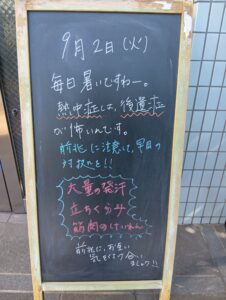 9月2日(火)
毎日暑いですねー。
熱中症は、後遺症
が怖いんです。
前兆に注意して、早目の
対抗を!!
大量の発汗
立ちくらみ
筋肉のけいれん
前兆に、お互い
気をつけ合い
ましょう!!